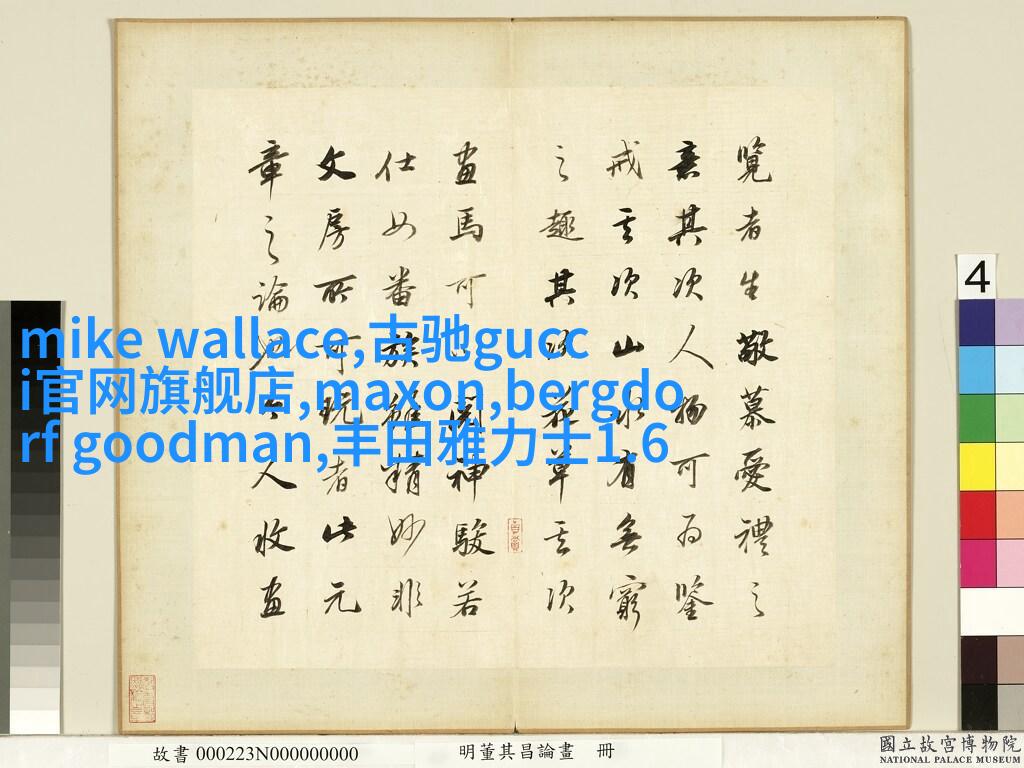 覽者生敬慕愛禮之
意其次人物可為鑒
戒其次山水有無窮
之趣其次花草其次
畫馬可以閱神駿若
仕女番族雖精妙非
文房所可玩者此元
章之論也今人收畫
mike wallace,古驰gucc
i官网旗舰店,maxon,bergdo
rf goodman,丰田雅力士1.6
4
故書 000223N000000000
明董其昌論畫 冊
國立故宮博物院
NATIONAL PALACE MUSEUM